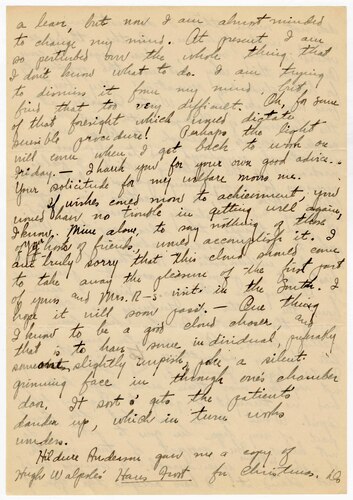 a lean, but now I am almost minded
to change my mind. At present I am
so perturbed over the whole thing that
I don't know what to do. I am trying
to dismiss it from my mind, but I
find that too very difficult. Oh, for some
of that foresight which would dictate
sensible procedure! Perhaps the light
will come when I get back to work on
Friday. — Thank you for your own good advice. -
Your solicitude for my welfare moves me.
If wishes could mount to achievement, you
would have no trouble in getting well again,
I know. Mine alone, to say nothing of those
of host of friends, would accomplish it. I
am truly sorry that this cloud should come
to take away the pleasure of the first part
of yours and Mrs. R-s visits in the South. I
hope it will soon pass. — One thing
I know to be a good cloud chaser and
that is to have some individual, preferably
someone slightly impish, poke a silent
grinning face in through one's chamber
door. It sort o' gets the patient's
dander up, which in turn works
wonders.
Hildure Anderson gave me a copy of
Hugh Walpole's Hans Frost for Christmas.